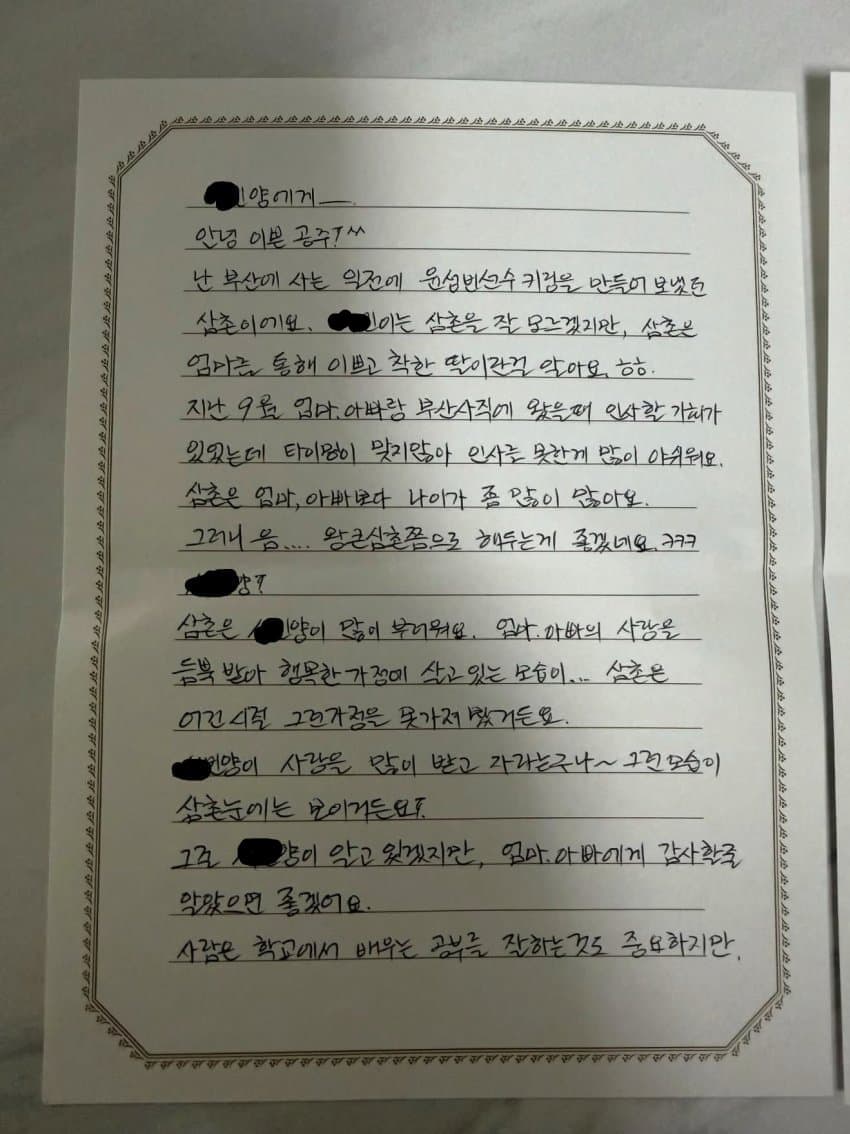 양에게 ㅡ.
안녕 이쁜 공주! ^^
난 부산에 사는 일전에 윤성빈선수 키링을 만들어 보냈던
삼촌이에요. 이는 삼촌을 잘 모르겠지만, 삼촌은
엄마를 통해 이쁘고 착한 딸이란걸 알아요. ㅎㅎ.
지난 9월 엄마.아빠랑 부산사직에 왔을때 인사할 기회가
있었는데 타이밍이 맞지않아 인사를 못한게 많이 아쉬워요.
삼촌은 엄마, 아빠보다 나이가 좀 많이 많아요.
그러니 음.... 왕큰삼촌쯤으로 해두는게 좋겠네요. ㅋㅋㅋ
양!
삼촌은 양이 많이 부러워요. 엄마.아빠의 사랑을
듬뿍 받아 행복한 가정에 살고 있는 모습이... 삼촌은
어린시절 그런가정을 못가져 봤거든요.
민양이 사랑을 많이 받고 자라는구나~ 그런모습이
삼촌눈에는 보이거든요!
그르 양이 알고 있겠지만, 엄마.아빠에게 감사할줄
알았으면 좋겠어요.
사람은 학교에서 배우는 공부를 잘하는것도 중요하지만,